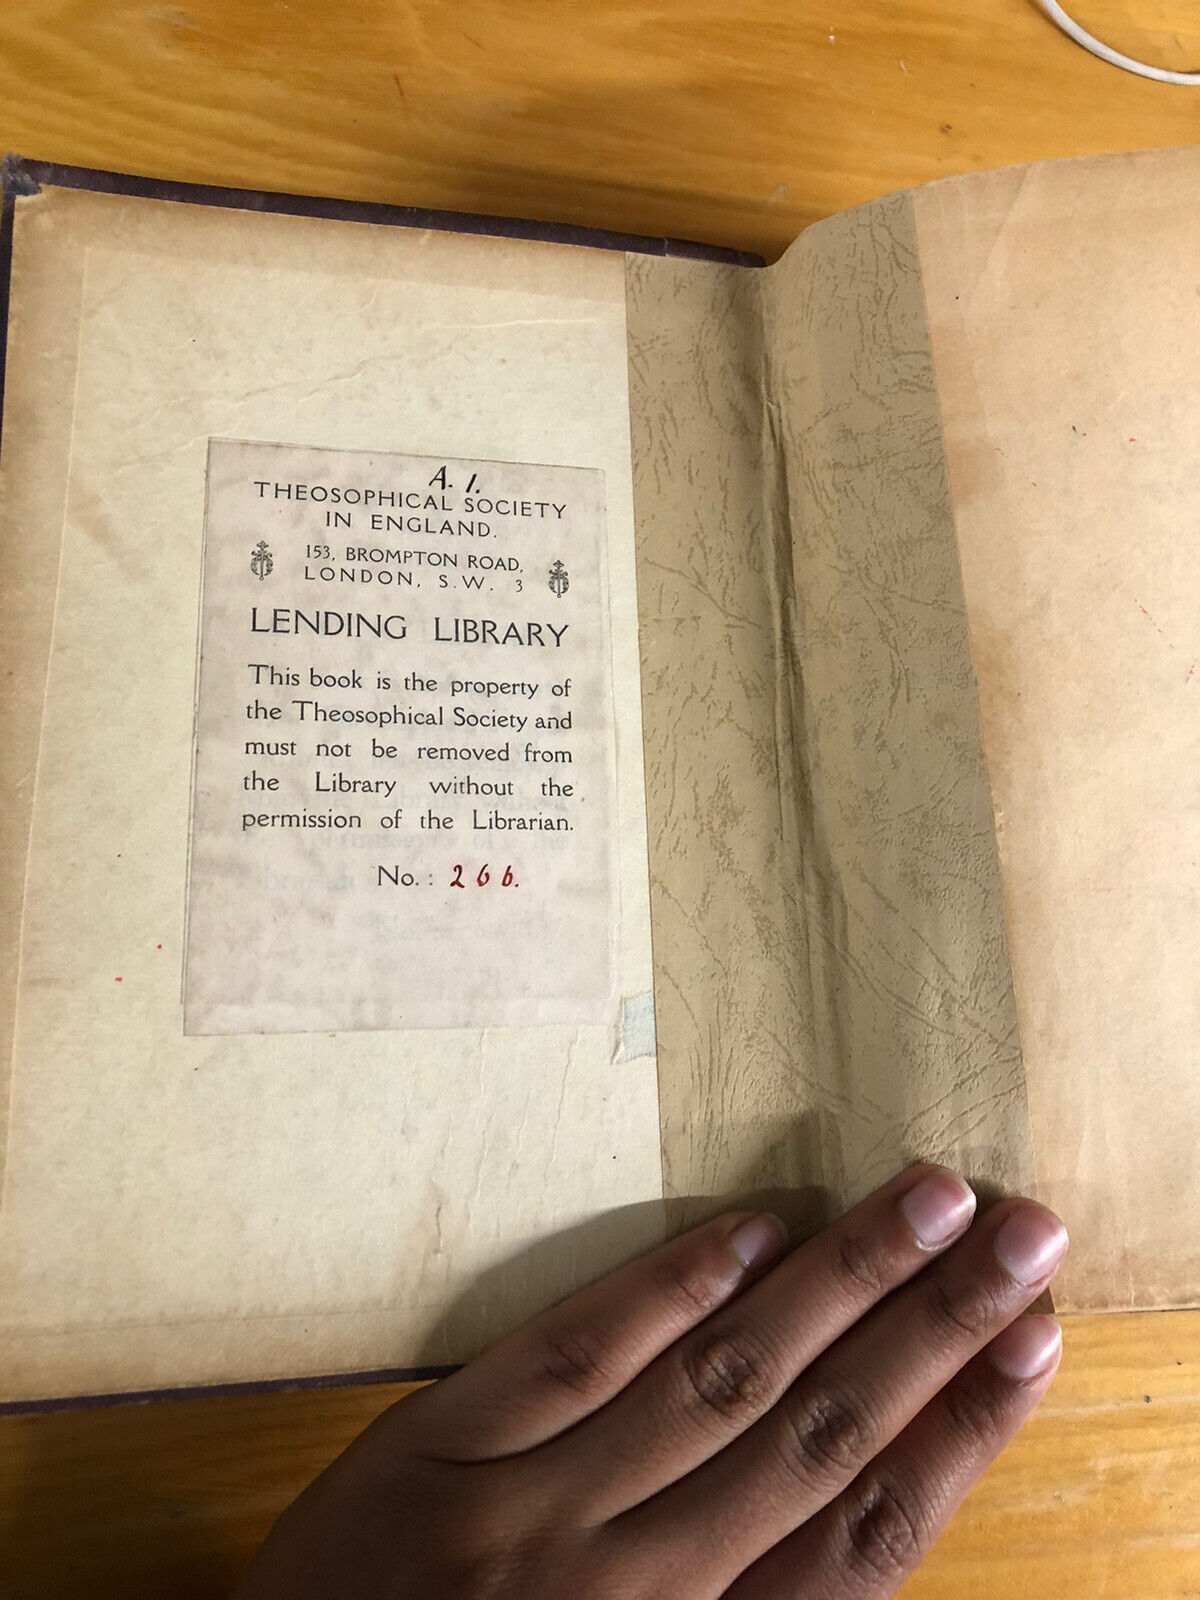 A. 1.
THEOSOPHICAL SOCIETY
IN ENGLAND.
153, BROMPTON ROAD,
LONDON, S.W. 3
LENDING LIBRARY
This book is the property of
the Theosophical Society and
must not be removed from
the Library without the
permission of the Librarian.
No.: 266.